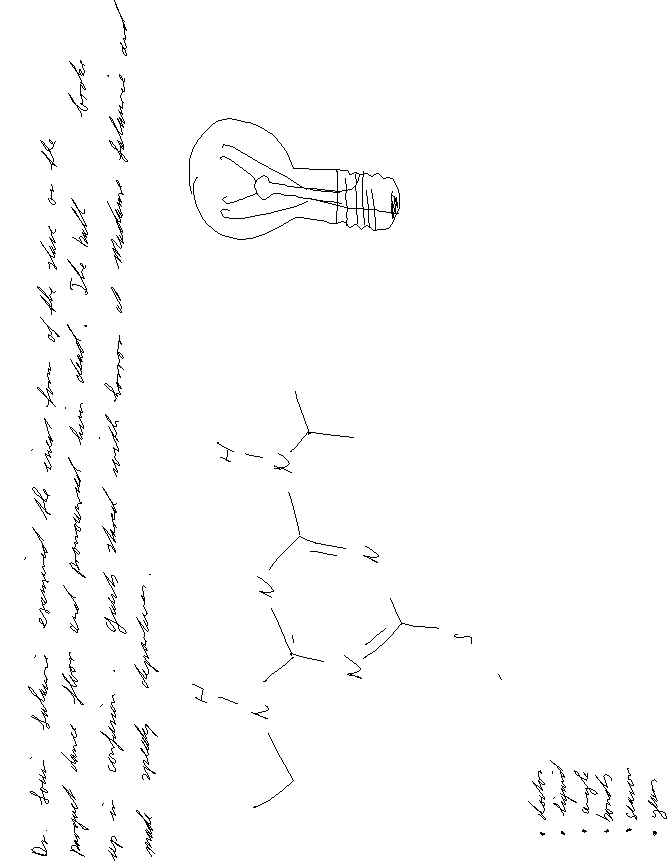 Dr. Louis Lalaurie examined the inert form of the slave on the
parquet dance floor and pronounced him dead. The ball broke
up in confusion. Guests stared with horror at Madame Lalaurie and
made speedy departures.
H
N
N
H
N
N
N
S
• doctor
• liquid
• angle
• bonds
• season
• glass